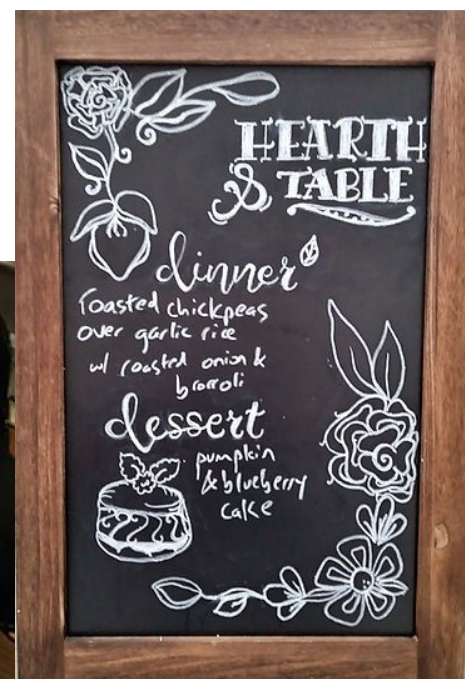 HEARTH
& TABLE
dinner
roasted chickpeas
over garlic rice
w/ roasted onion &
broccoli
dessert
pumpkin
& blueberry
cake